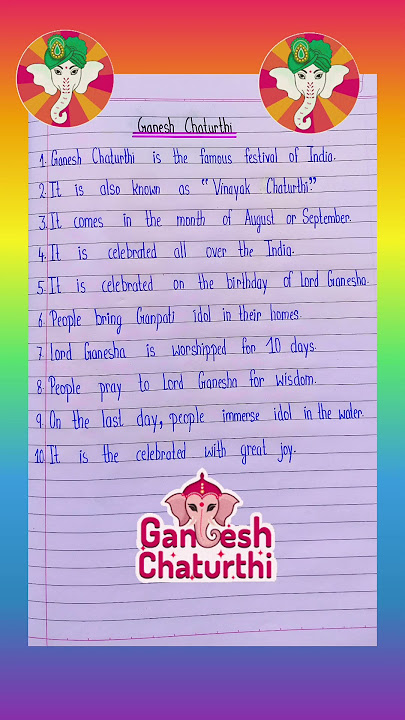 Ganesh Chaturthi
1. Ganesh Chaturthi is the famous festival of India.
2. It is also known as "Vinayak Chaturthi."
3. It comes in the month of August or September.
4. It is celebrated all over the India.
5. It is celebrated on the birthday of Lord Ganesha.
6. People bring Ganpati idol in their homes.
7. Lord Ganesha is worshipped for 10 days.
8. People pray to Lord Ganesha for wisdom.
9. On the last day, people immerse idol in the water.
10. It is the celebrated with great joy.
Ganesh
Chaturthi